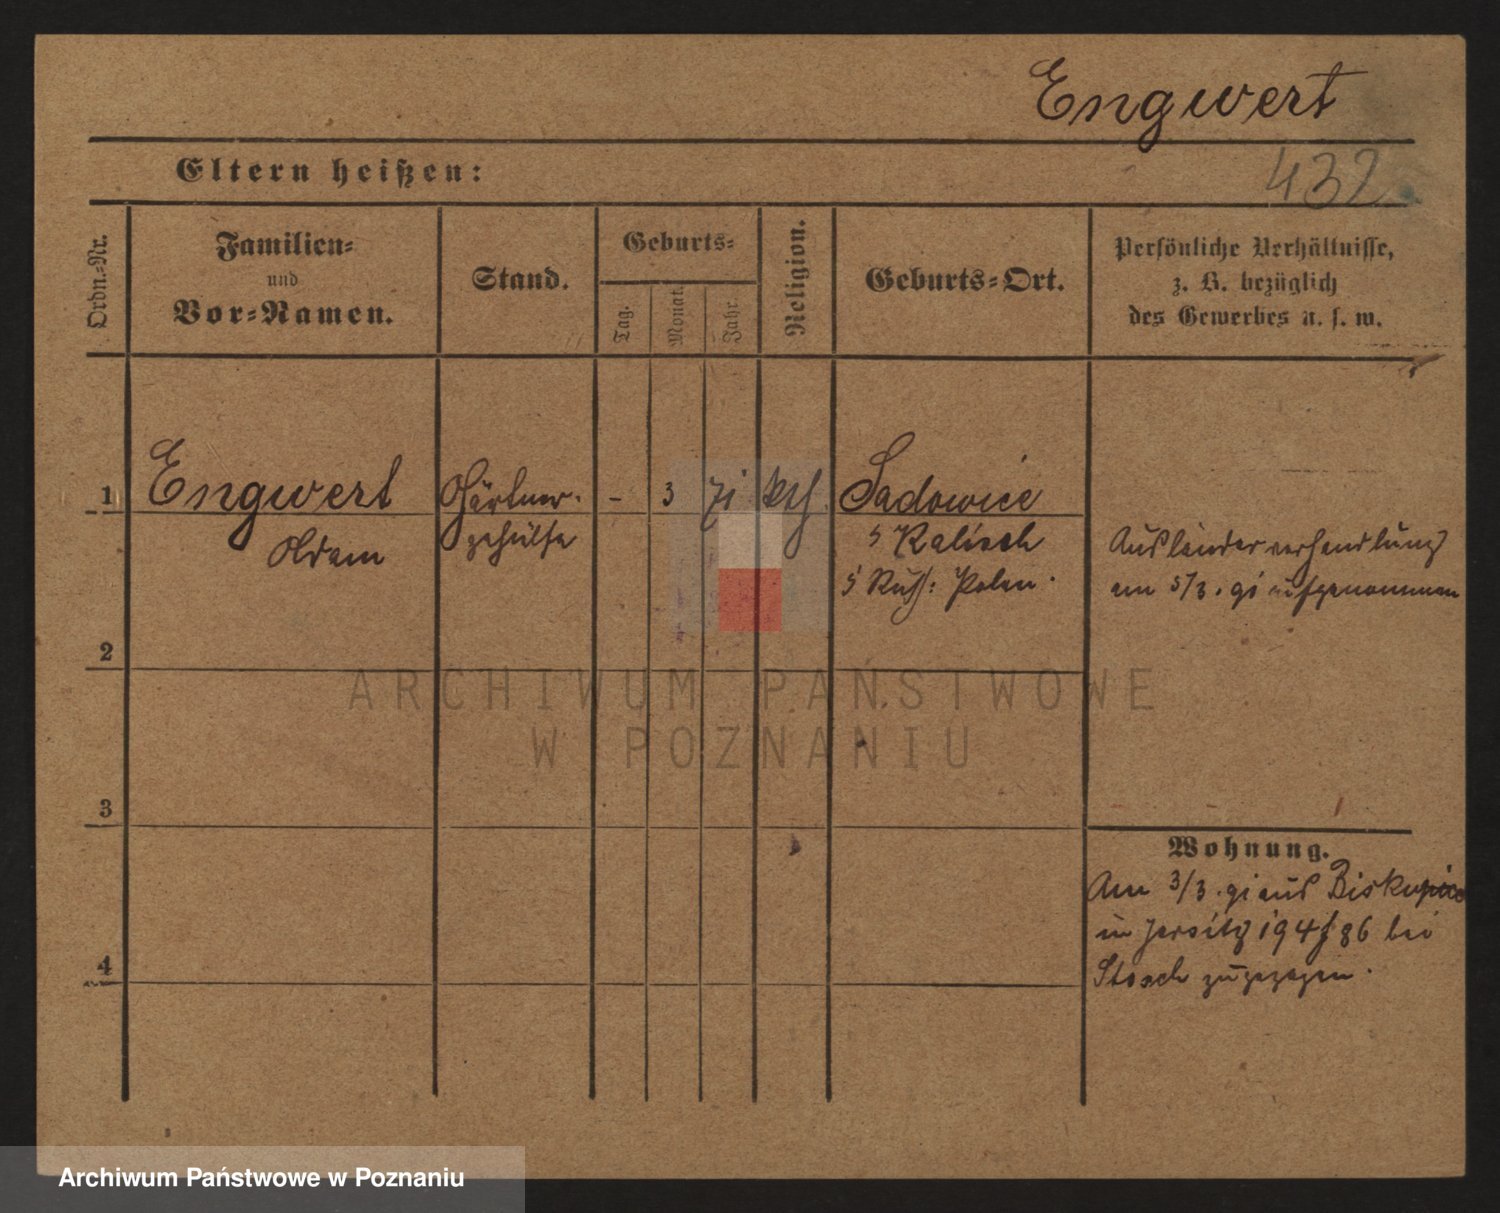 Engwert
Eltern heißen:
432
Ordn.-Nr.
Familien-
und
Vor-Namen.
Stand.
Geburts-
Tag.
Monat.
Jahr.
Religion.
Geburts-Ort.
Persönliche Verhältnisse,
z. B. bezüglich
des Gewerbes u. s. w.
1
Engwert
Adam
Gärtner-
gehülfe
-
3
71
kth.
Sadowice
Kalisch
Russ: Polen.
Ausländerverhandlung
am 5/3. 91 aufgenommen
2
ARCHIWUM PAŃSTWOWE
W POZNANIU
3
Wohnung.
Am 3/3. 91 aus Biskupice
in Jersitz 194/86 bei
Stosch zugezogen.
4
Archiwum Państwowe w Poznaniu